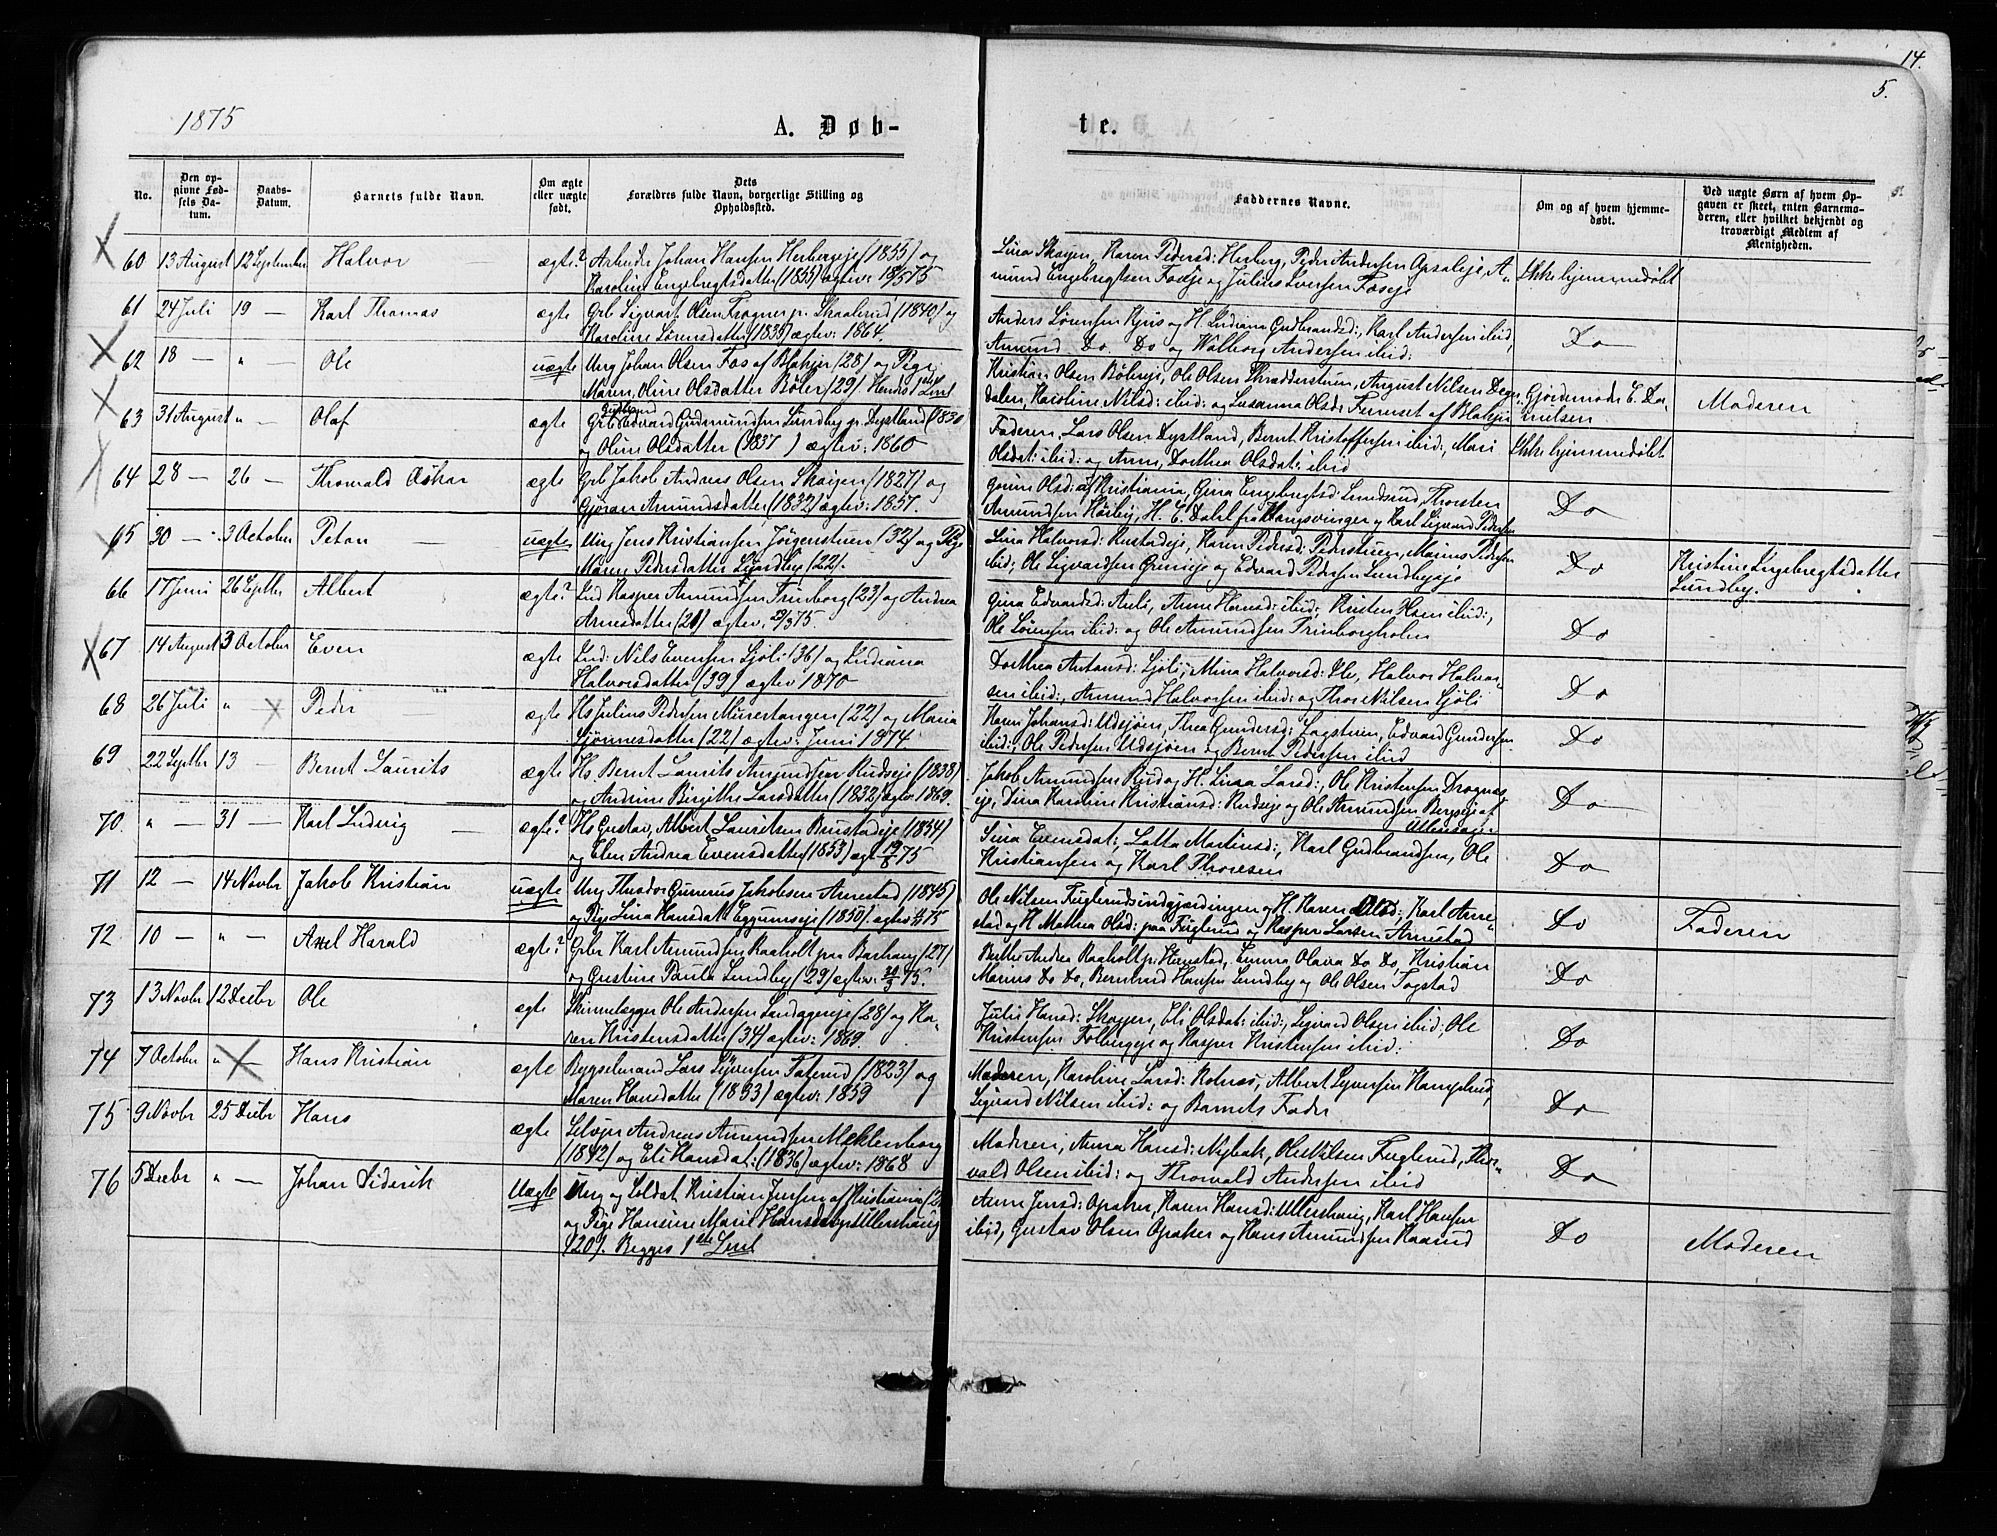 14.
5.
1875
A. Døb-
te.
No.
Den op-
givne Fød-
sels Da-
tum.
Daabs-
Datum.
Barnets fulde Navn.
Om ægte
eller uægte
født.
Dets
Forældres fulde Navn, borgerlige Stilling og
Opholdssted.
Faddernes Navne.
Om og af hvem hjemme-
døbt.
Ved uægte Børn af hvem Op-
gaven er skeet, enten Barnemo-
deren, eller hvilket bekjendt og
troværdigt Medlem af
Menigheden.
60 13 August 12 September Halvor ægte? Arbeider Johan Hansen Herbergeje (1855) og
Karoline Engebregtsdatter (1855) ægtev: 75
Lina Skøyen, Karen Pedersd: Herberg, Peder Andersen Opsaleje, A-
mund Engebregtsen Foseje og Julius Iversen Foseje
Ikke hjemmedøbt
61 24 Juli 19 — Karl Thomas ægte Grb Sigvart Olsen Frogner p. Skaalerud (1840) og
Karoline Lørensdatter (1835) ægtev: 1864.
Anders Lørensen Kjus og H. Indiana Gudbrandsd:, Karl Andersen ibid,
Amund Do Do og Walborg Andersen ibid:
Do
62 18 — " Ole uægte Ung Johan Olsen Fos af Blakjer (28) og Pige
Maren Oline Olsdatter Bøler (29). Hendes 1ste Leiel
Kristian Olsen Bølereje, Ole Olsen Skrædderstuen, August Nilsen Deger-
dalen, Karoline Nilsd: ibid: og Susanna Olsd: Fernset af Blakjer
Gjordemoder E. Da-
nielsen
Moderen
63 31 August " — Olaf ægte Grb Edvard Gudmundsen Lundby p. Dystland (1830
og Oline Olsdatter (1837 ) ægtev: 1860
Faderen, Lars Olsen Dystland, Bernt Kristoffersen ibid, Mari
Olsdat: ibid: og Anne Dorthea Olsdat: ibid
Ikke hjemmedøbt
64 28 — 26 — Thorvald Oskar ægte Grb Jakob Andreas Olsen Skøien (1827) og
Gjøran Amundsdatter (1832) ægtev: 1857.
Olsd: af Kristiania, Gina Engebregtsd: Lundsrud, Thorsten
Amundsen Høiby, H. C. Dahl fra Kongsvinger og Karl Sigvard Pedersen
Do
65 30 — 3 October Petan uægte Ung Jens Kristiansen Jørgerstuen (32) og Pige
Maren Pedersdatter Lundby (22).
Lina Halvorsd: Rustadeje, Karen Pedersd: Pederstuen, Marius Pedersen
ibid, Ole Sigvardsen Gruneje og Edvard Pedersen Lundbyeje
Do
Kristine Engebregtsdatter
Lundby.
66 17 Juni 26 Septbr Albert ægte? Ind Kasper Amundsen Trinborg (23) og Andrea
Arnesdatter (21) ægtev: 75.
Gina Edvardsd: Auli, Anne Hansd: ibid:, Kristen Olsen ibid:,
Ole Lørensen ibid: og Ole Amundsen Trinborgholen
Do
67 14 August 3 October Even ægte Ind: Nils Evensen Sjøli (36) og Indiana
Halvorsdatter (39) ægtev 1870
Dorthea Antonsd: Sjøli, Mina Halvorsd: Ile, Halvor Halvor-
sen ibid:, Amund Halvorsen ibid: og Thor Nilsen Sjøli
Do
68 26 Juli " Peder ægte Hs Julius Pedersen Murestangen (22) og Maria
Gjørmesdatter (22) ægtev: Juni 1874.
Karen Johansd: Udsjøen, Thea Gundersd: Fogstuen, Edvard Gundersen
ibid:, Ole Pedersen Udsjøen og Bernt Pedersen ibid
Do
69 22 Septbr 13 — Bernt Laurits ægte Hs Bernt Laurits Amundsen Rudseje (1838)
og Andrine Birgithe Larsdatter (1832) ægtev 1869.
Jakob Amundsen Rud og H. Lina Larsd:, Ole Kristensen Drognes-
eje, Dina Karoline Kristiansd: Rudseje og Ole Amundsen Bergseje af
Ullensager
Do
70 " — 31 — Karl Ludvig ægte? Hs Gustav Albert Lauritsen Brustadeje (1854)
og Elen Andrea Evensdatter (1853) ægt. 19/8 75
Sina Evensdat:, Lotta Martinsd:, Karl Gudbrandsen, Ole
Kristiansen og Karl Thoresen
Do
71 12 — 14 Novbr Jakob Kristian uægte Ung Theodor Gunerus Jakobsen Arnestad (1845)
og Pige Lina Hansdatt Eggumseje (1850). ægtev 75
Ole Nilsen Fuglerudsindgjærdingen og H. Karen Olsd:, Karl Arne-
stad og H. Mathea Olsd: paa Fuglerud og Kasper Larsen Arnestad
Do
Faderen
72 10 — " — Axel Harald ægte? Grbr Karl Amundsen Raaholt paa Barhaug (27)
og Gustine Paula Lundby (29) ægtev: 75.
Berthe Andrea Raaholt p. Henstad, Emma Olava Do Do, Kristian
Marius Do Do, Bernhard Hansen Lundby og Ole Olsen Fogstad
Do
73 13 Novbr 12 Decbr Ole ægte Skinnelægger Ole Andersen Sandagereje (28) og Ka-
ren Kristensdatter (34) ægtev: 1869.
Julie Hansd: Skøyen, Eli Olsdat: ibid:, Sigvard Olsen ibid:, Ole
Kristensen Folbergeje og Kasper Kristensen ibid:
Do
74 7 October " — Hans Kristian ægte ægte Byggselmand Lars Syversen Fosrud (1823) og
Maren Hansdatter (1833) ægtev: 1859
Moderen, Karoline Larsd: Rotnes, Albert Syversen Hampland,
Sigvard Nilsen ibid: og Barnets Fader
Do
75 9 Novbr 25 Decbr Hans ægte Selvejer Andreas Amundsen Meklenborg
(1842) og Eli Hansdat: (1836) ægtev: 1868
Moderen, Anna Hansd: Nybak, Ole Nilsen Fuglerud, Thor-
vald Olsen ibid: og Thorvald Andersen ibid
Do
76 5 Decbr " — Johan Diderik Uægte Ung og Soldat Kristian Jensen af Kristiania (2
og Pige Hansine Marie Hansdatter Ullershaug
(20). Begges 1ste Leiel
Anne Jensd: Opaker, Karen Hansd: Ullershaug, Karl Hansen
ibid, Gustav Olsen Opaker og Hans Amundsen Kaarud
Do
Moderen